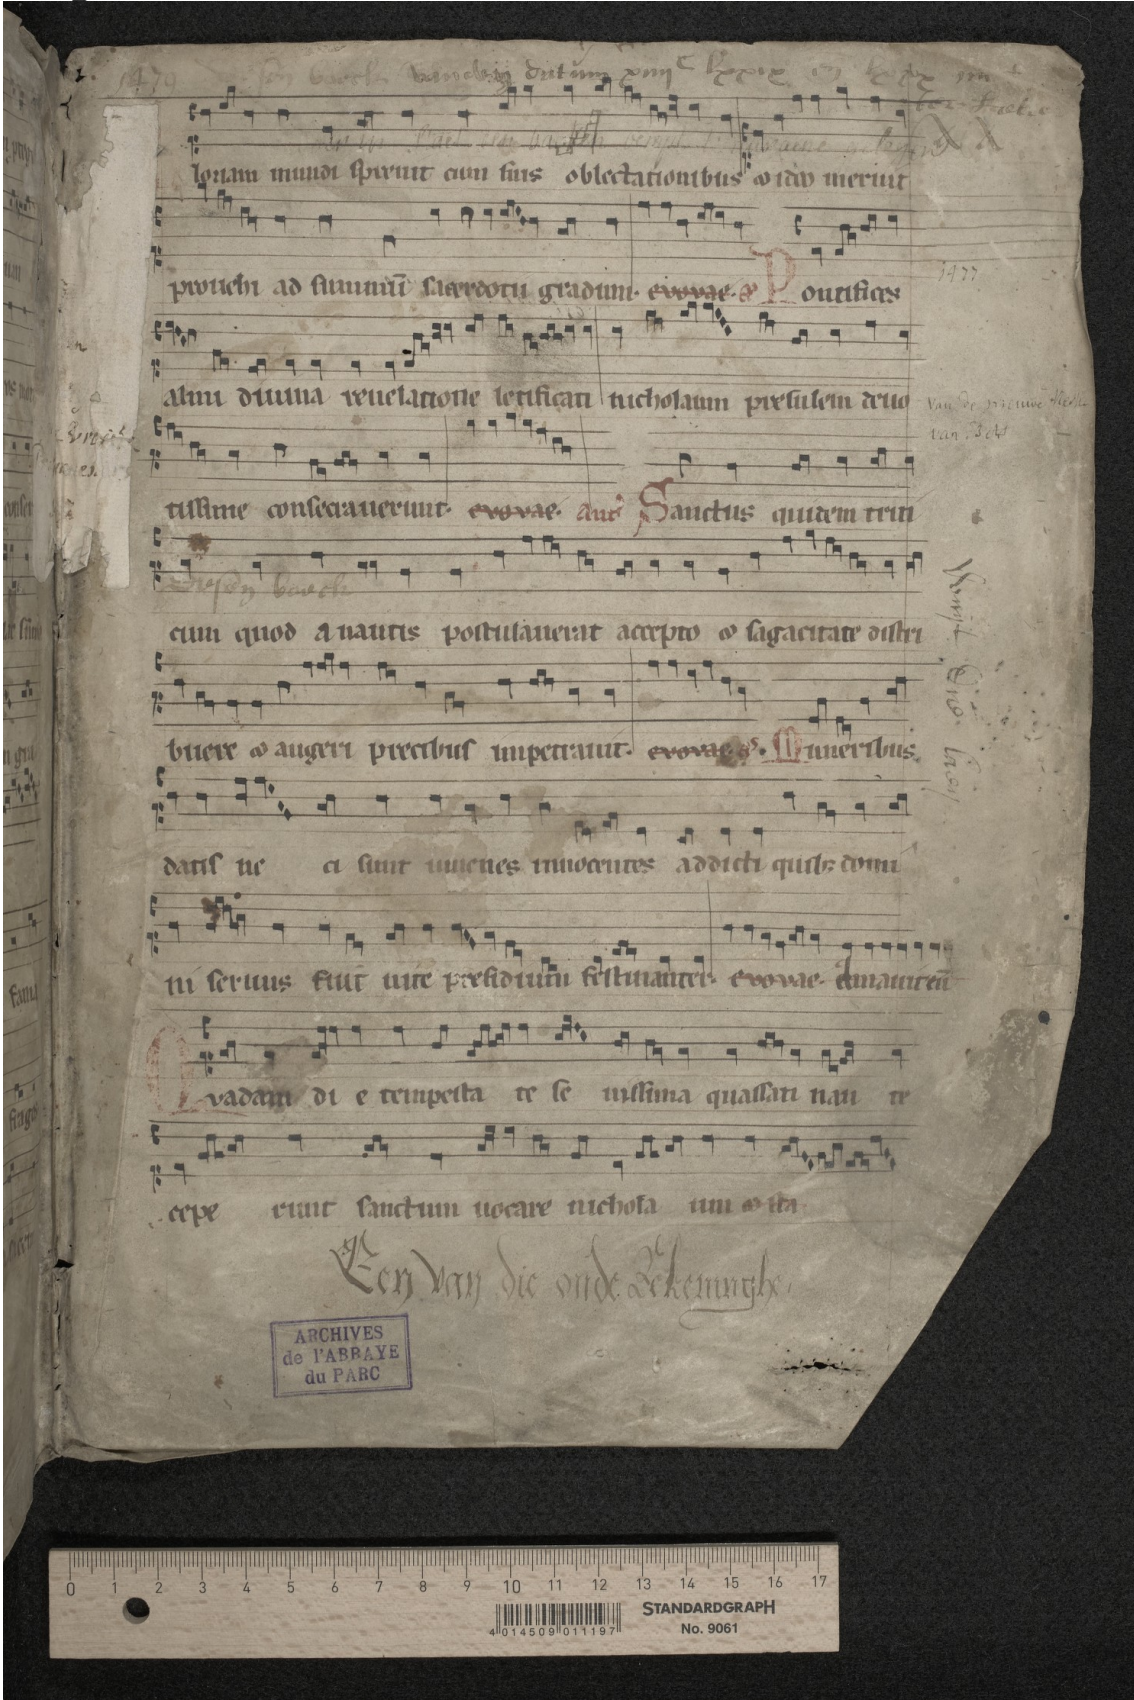 1479 boeck van datum xiiijc lxxix
loriam mundi spreuit cum suis oblectationibus et ideo meruit
prouehi ad summū sacerdotii gradum. evovae. Pontifices
1477
almi diuina reuelatione letificati nicholaum presulem deuo
tissime consecrauerunt. evovae. Ant. Sanctus quidem triti
boeck
cum quod a nautis postulauerat accepto et sagacitate distri
buere et augeri precibus impetrauit. evovae. Muneribus
datis ne ci sunt iuuenes innocentes addicti quib; domi
ni seruus fuit uite presidium festinanter. evovae. Amauit eū
Qvadam di e tempesta te se uissima quassati nau te
cepe runt sanctum uocare nichola um et ita
Een van die oude Rekeninghe
ARCHIVES
de l'ABBAYE
du PARC
0 1 2 3 4 5 6 7 8 9 10 11 12 13 14 15 16 17
4 014509 011197
STANDARDGRAPH
No. 9061